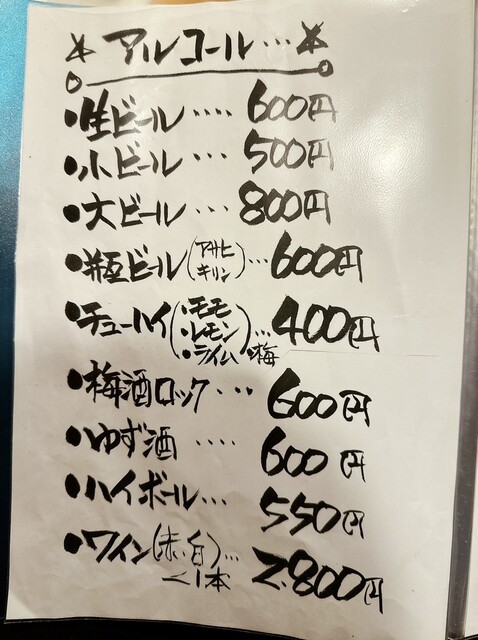 ☆アルコール…☆
・生ビール‥‥600円
・小ビール…500円
・大ビール…800円
・瓶ビール(アサヒ キリン)…600円
・チューハイ(・モモ ・レモン ・ライム ・梅)…400円
・梅酒ロック…600円
・ゆず酒‥‥600円
・ハイボール…550円
・ワイン(赤・白)…2.800円
<1本